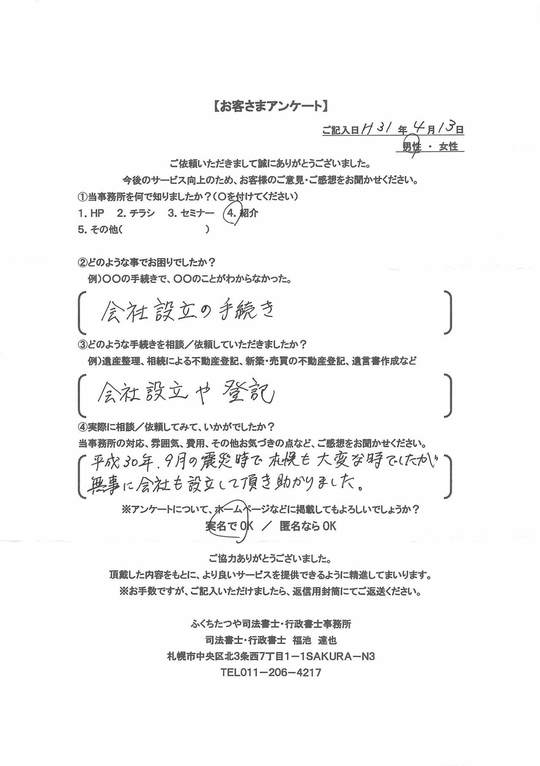 【お客さまアンケート】
ご記入日H31年4月13日
男性 ・ 女性
ご依頼いただきまして誠にありがとうございました。
今後のサービス向上のため、お客様のご意見・ご感想をお聞かせください。
①当事務所を何で知りましたか?(〇を付けてください)
1. HP 2. チラシ 3. セミナー 4. 紹介
5. その他( )
②どのような事でお困りでしたか?
例)〇〇の手続きで、〇〇のことがわからなかった。
会社設立の手続き
③どのような手続きを相談/依頼していただきましたか?
例)遺産整理、相続による不動産登記、新築・売買の不動産登記、遺言書作成など
会社設立や登記
④実際に相談/依頼してみて、いかがでしたか?
当事務所の対応、雰囲気、費用、その他お気づきの点など、ご感想をお聞かせください。
平成30年、9月の震災時で札幌も大変な時でしたが
無事に会社も設立して頂き助かりました。
※アンケートについて、ホームページなどに掲載してもよろしいでしょうか?
実名でOK / 匿名ならOK
ご協力ありがとうございました。
頂戴した内容をもとに、より良いサービスを提供できるように精進してまいります。
※お手数ですが、ご記入いただけましたら、返信用封筒にてご返送ください。
ふくちたつや司法書士・行政書士事務所
司法書士・行政書士 福池 達也
札幌市中央区北3条西7丁目1-1SAKURA-N3
TEL011-206-4217